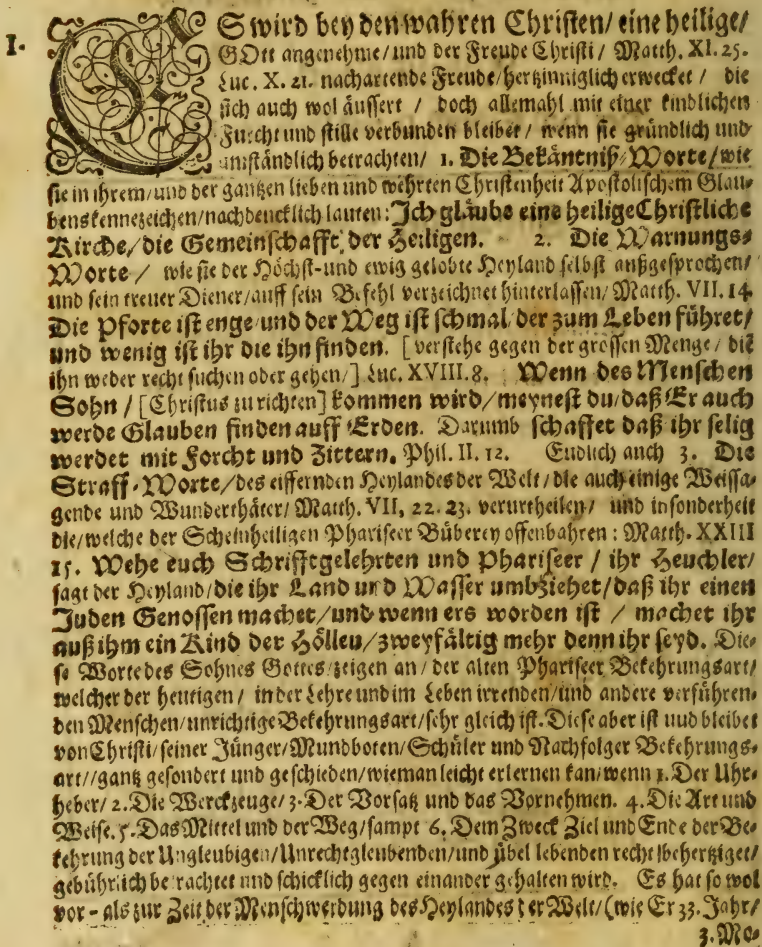 I.
ES wird bey den wahren Christen/ eine heilige/
GOtt angenehme/ und der Freude Christi/ Matth. XI. 25.
Luc. X. 21. nachartende Freude/ hertzinniglich erwecket / die
sich auch wol äussert / doch allemahl mit einer kindlichen
Furcht und stille verbunden bleibet/ wenn sie gründlich und
umständlich betrachten/ 1. Die Bekäntniß-Worte/ wie
sie in ihrem/ und der gantzen lieben und wehrten Christenheit Apostolischem Glau-
benskennezeichen/ nachdencklich lauten: Ich glaube eine heilige Christliche
Kirche/ die Gemeinschafft der Heiligen. 2. Die Warnungs-
Worte / wie sie der Höchst-und ewig gelobte Heyland selbst außgesprochen/
und sein treuer Diener/ auff sein Befehl verzeichnet hinterlassen/ Matth. VII. 14
Die Pforte ist enge und der Weg ist schmal der zum Leben führet/
und wenig ist ihr die ihn finden. [verstehe gegen der grossen Menge / die
ihn weder recht suchen oder gehen/] Luc. XVIII. 8. Wenn des Menschen
Sohn / [Christus zu richten] kommen wird/ meynest du/ daß Er auch
werde Glauben finden auff Erden. Darumb schaffet daß ihr selig
werdet mit Forcht und Zittern. Phil. II. 12. Endlich auch 3. Die
Straff-Worte/ des eiffernden Heylandes der Welt/ die auch einige Weissa-
gende und Wunderthäter/ Matth. VII, 22. 23. verurtheilen/ und insonderheit
die/ welche der Scheinheiligen Phariseer Büberey offenbahren: Matth. XXIII
15. Wehe euch Schrifftgelehrten und Phariseer / ihr Heuchler/
sagt der Heyland/ die ihr Land und Wasser umbziehet/ daß ihr einen
Juden Genossen machet/ und wenn ers worden ist / machet ihr
auß ihm ein Kind der Höllen/ zweyfältig mehr denn ihr seyd. Die-
se Worte des Sohnes Gottes/ zeigen an/ der alten Phariseer Bekehrungsart/
welcher der heutigen / in der Lehre und im Leben irrenden/ und andere verführen-
den Menschen/ unrichtige Bekehrungsart/ sehr gleich ist. Diese aber ist und bleibet
von Christi/ seiner Jünger/ Mundboten/ Schüler und Nachfolger Bekehrungs-
art// gantz gesondert und geschieden/ wie man leicht erlernen kan/ wenn 1. Der Uhr-
heber/ 2. Die Werckzeuge/ 3. Der Vorsatz und das Vornehmen. 4. Die Art und
Weise. 5. Das Mittel und der Weg/ sampt 6. Dem Zweck Ziel und Ende der Be-
kehrung der Ungleubigen/ Unrechtgleubenden/ und übel lebenden recht beherziget/
gebührlich betrachtet und schicklich gegen einander gehalten wird. Es hat so wol
vor - als zur Zeit der Menschwerdung des Heylandes der Welt/ (wie Er 33. Jahr/
3. Mo-